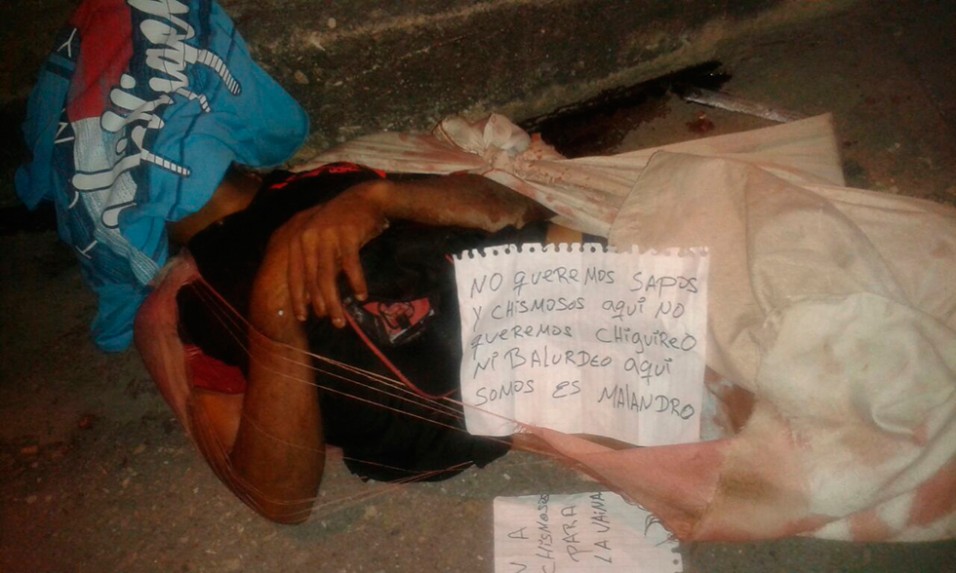 NO queremos SAPOS
Y CHISMOSOS aquí NO
queremos CHIguireo
Ni BALURDEO aquí
SOMOS ES MALANDRO
N A
CHISMOSOS
PARA
LA VAINA